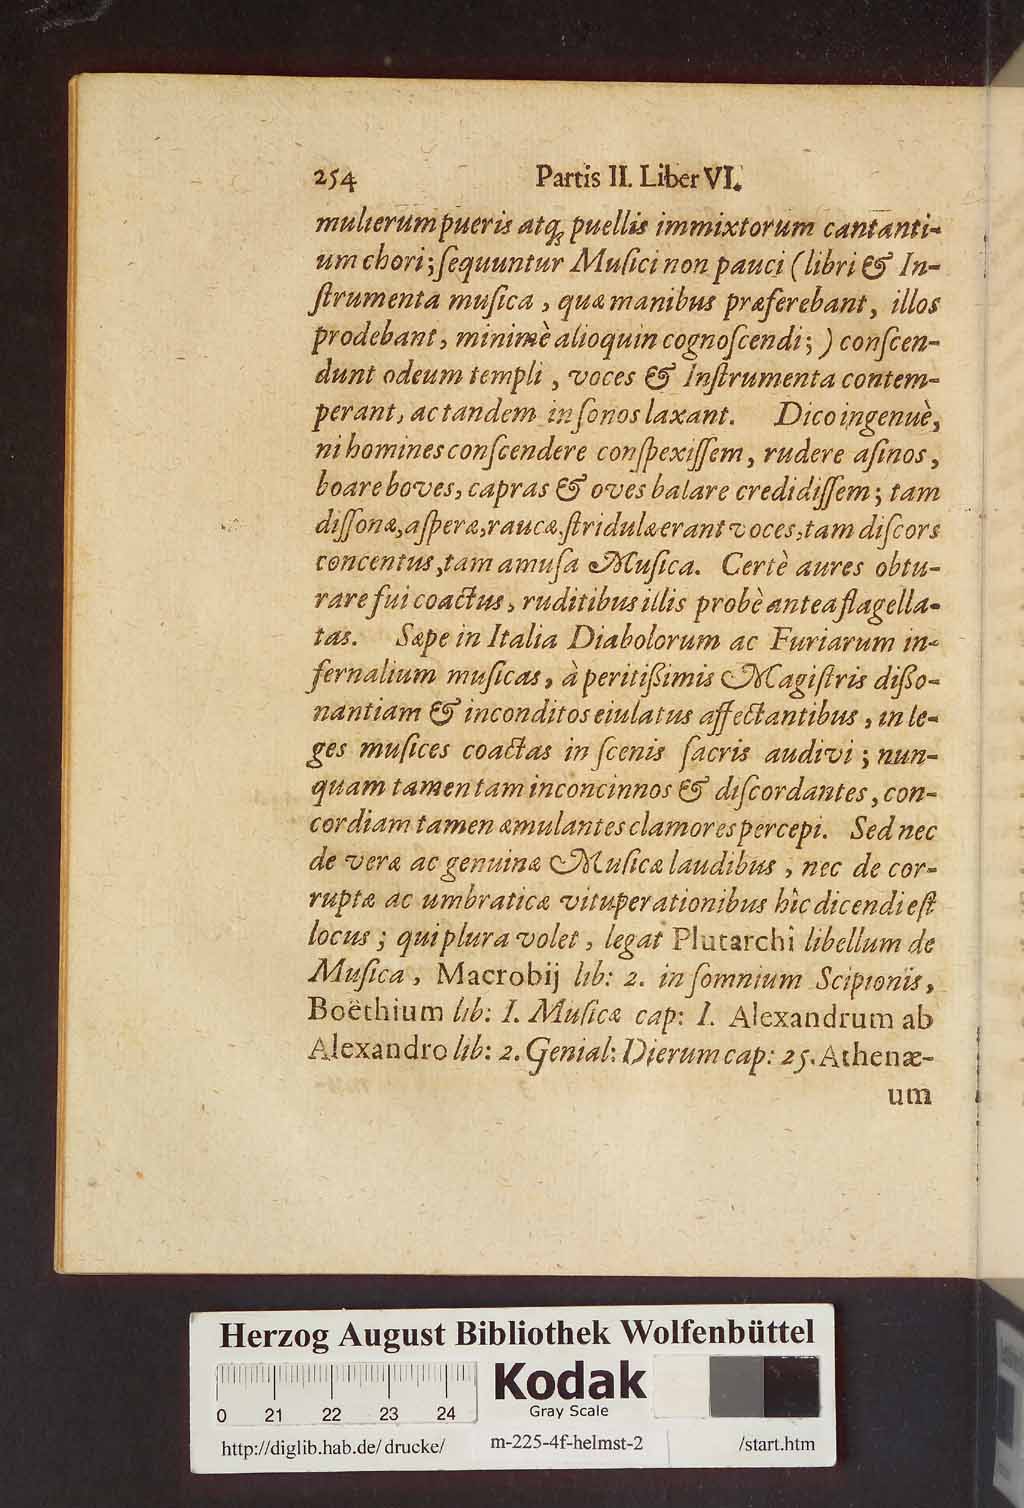 254 Partis II. Liber VI.
mulierum pueris atq; puellis immixtorum cantanti-
um chori; ſequuntur Muſici non pauci (libri & In-
ſtrumenta muſica, quæ manibus præferebant, illos
prodebant, minimè alioquin cognoſcendi;) conſcen-
dunt odeum templi, voces & Inſtrumenta contem-
perant, ac tandem in ſonos laxant. Dico ingenuè,
ni homines conſcendere conſpexiſſem, rudere aſinos,
boare boves, capras & oves balare credidiſſem; tam
diſſonæ, aſperæ, raucæ, ſtridulæ erant voces, tam diſcors
concentus, tam amuſa Muſica. Certè aures obtu-
rare fui coactus, ruditibus illis probè antea flagella-
tas. Sæpe in Italia Diabolorum ac Furiarum in-
fernalium muſicas, à peritißimis Magiſtris dißo-
nantiam & inconditos eiulatus affectantibus, in le-
ges muſices coactas in ſcenis ſacris audivi; nun-
quam tamen tam inconcinnos & diſcordantes, con-
cordiam tamen æmulantes clamores percepi. Sed nec
de veræ ac genuinæ Muſicæ laudibus, nec de cor-
ruptæ ac umbraticæ vituperationibus hîc dicendi eſt
locus; qui plura volet, legat Plutarchi libellum de
Muſica, Macrobij lib: 2. in ſomnium Scipionis,
Boëthium lib: I. Muſicæ cap: I. Alexandrum ab
Alexandro lib: 2. Genial: Dierum cap: 25. Athenæ-
um
Herzog August Bibliothek Wolfenbüttel
0 21 22 23 24
Kodak
Gray Scale
http://diglib.hab.de/drucke/ m-225-4f-helmst-2 /start.htm